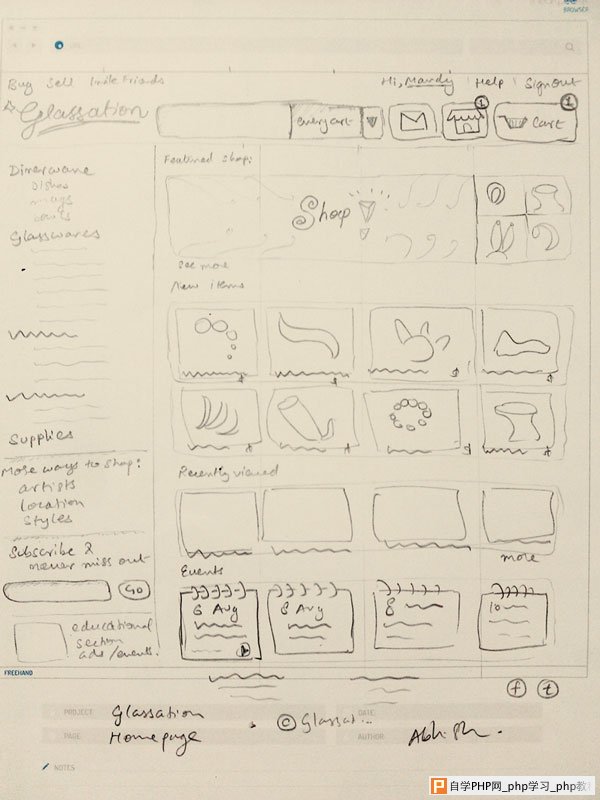 BROWSER
Buy Sell Invite Friends
Hi, Mandy Help Sign out
Glassation
every art
1
Cart
1
Featured shop:
Dinnerware
Dishes
mugs
bowls
Glasswares
Shop
See more
New items
$ $ $ $
Supplies
More ways to shop:
artists
location
styles
Recently viewed
Subscribe &
never miss out
GO
more
Events
6 Aug
8 Aug
8
10
educational
section
ads/events.
FREEHAND
f t
PROJECT: Glassation
DATE:
© Glassat...
PAGE: Homepage
AUTHOR:
NOTES
自学PHP网_php学习_php教